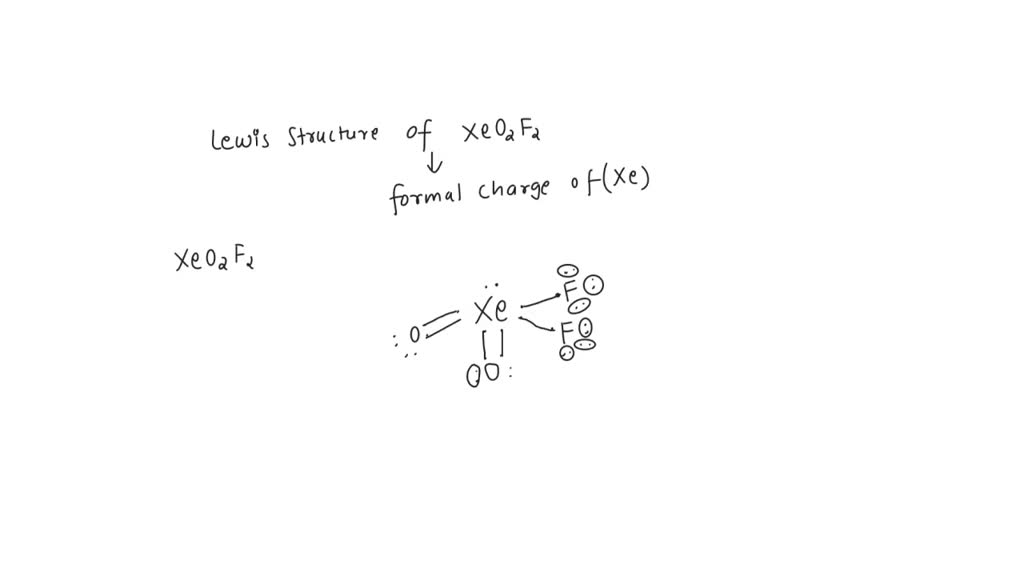 Lewis Structure of XeO₂F₂
↓
formal charge of (Xe)
XeO₂F₂
F
Xe
:O
F
O: